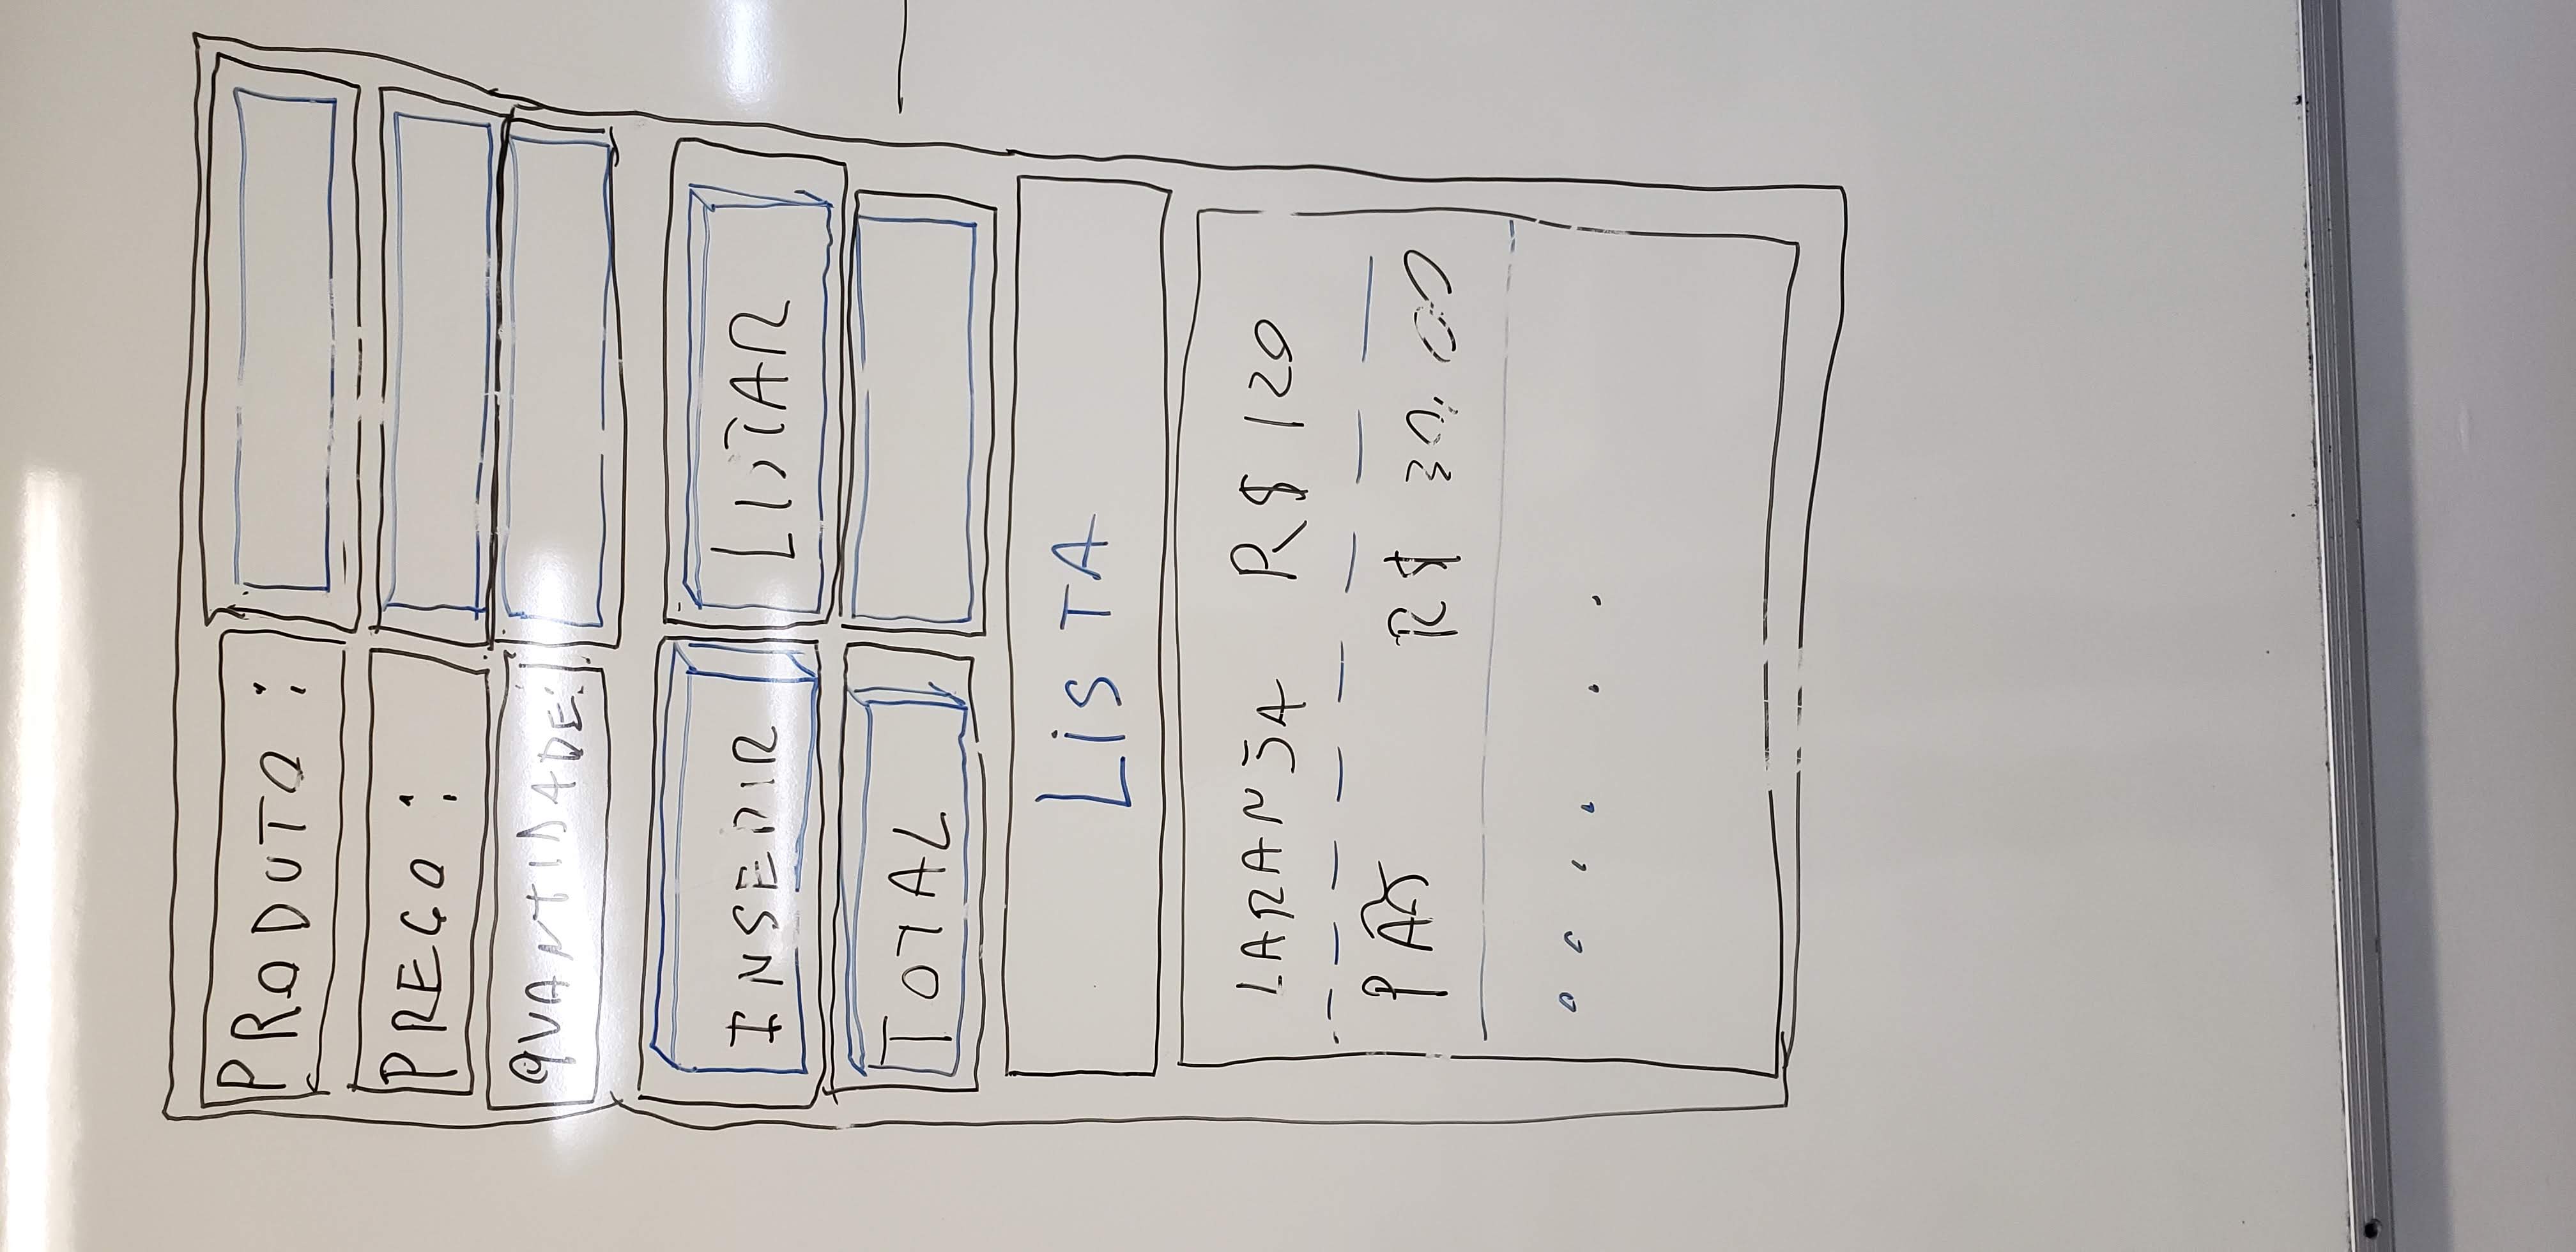 PRODUTO :
PREÇO :
QUANTIDADE:
INSERIR
LISTAR
TOTAL
LISTA
LARANJA R$ 120
PÃO R$ 30,00